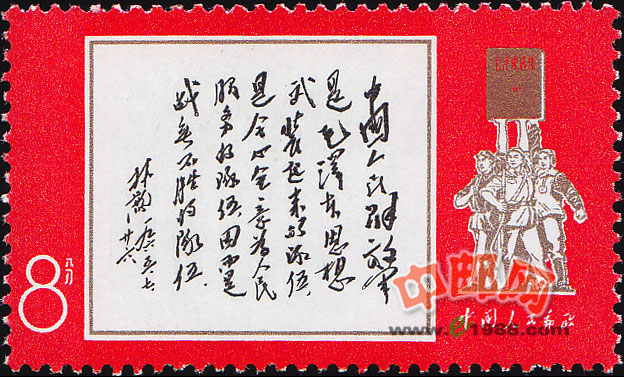 中國人民解放军
是毛澤东思想
武装起来的隊伍,
是全心全意为人民
服务的隊伍,因而是
战无不胜的隊伍。
林彪 一九六五、七、
廿六
8 八分
中国人民邮政
中邮网
www.e1988.com